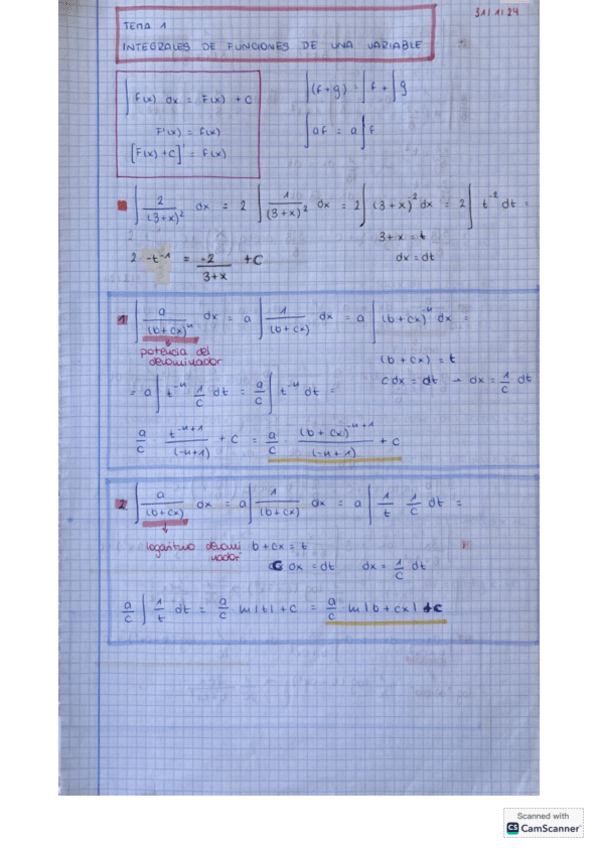 31/1/24
TEMA 1
INTEGRALES DE FUNCIONES DE UNA VARIABLE
∫ f(x) dx = F(x) + C
F'(x) = f(x)
[F(x) + C]' = f(x)
∫(f+g) = ∫f + ∫g
∫af = a∫f
∫ 2/(3+x)² dx = 2 ∫ 1/(3+x)² dx = 2∫ (3+x)⁻² dx = 2∫ t⁻² dt =
3+x = t
dx = dt
2 · -t⁻¹ = -2/(3+x) + C
1 ∫ a/(b+cx)ⁿ dx = a ∫ 1/(b+cx) dx = a ∫ (b+cx)⁻ⁿ dx =
potencia del
denominador
(b+cx) = t
c dx = dt → dx = 1/c dt
= a ∫ t⁻ⁿ 1/c dt = a/c ∫ t⁻ⁿ dt =
a/c t⁻ⁿ⁺¹/(-n+1) + C = a/c · (b+cx)⁻ⁿ⁺¹/(-n+1) + C
2 ∫ a/(b+cx) dx = a ∫ 1/(b+cx) dx = a ∫ 1/t 1/c dt =
logaritmo denomi
nador
b+cx = t
C dx = dt dx = 1/c dt
a/c ∫ 1/t dt = a/c ln|t| + C = a/c ln|b+cx| + C
Scanned with
CS CamScanner